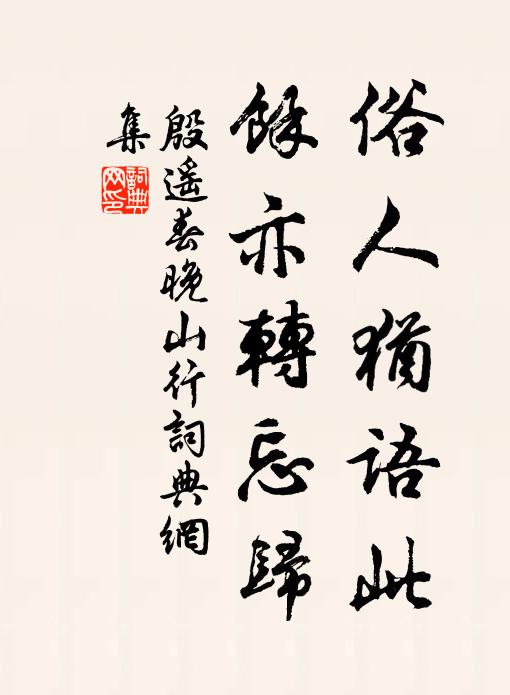 俗人猶語此
餘亦轉忘歸
殷遥春晚山行詞典網
集
詞典
网印